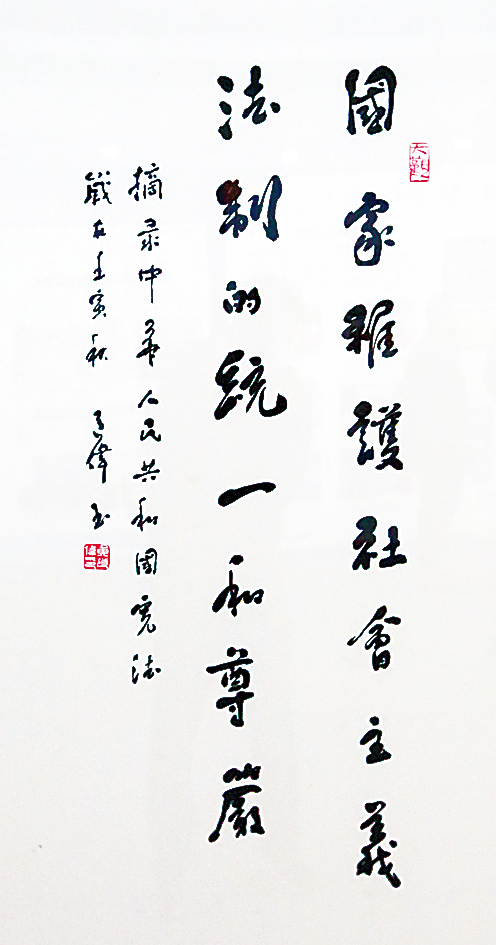 國家維護社會主義
法制的統一和尊嚴
摘录中華人民共和國憲法
歲在壬寅秋 偉书